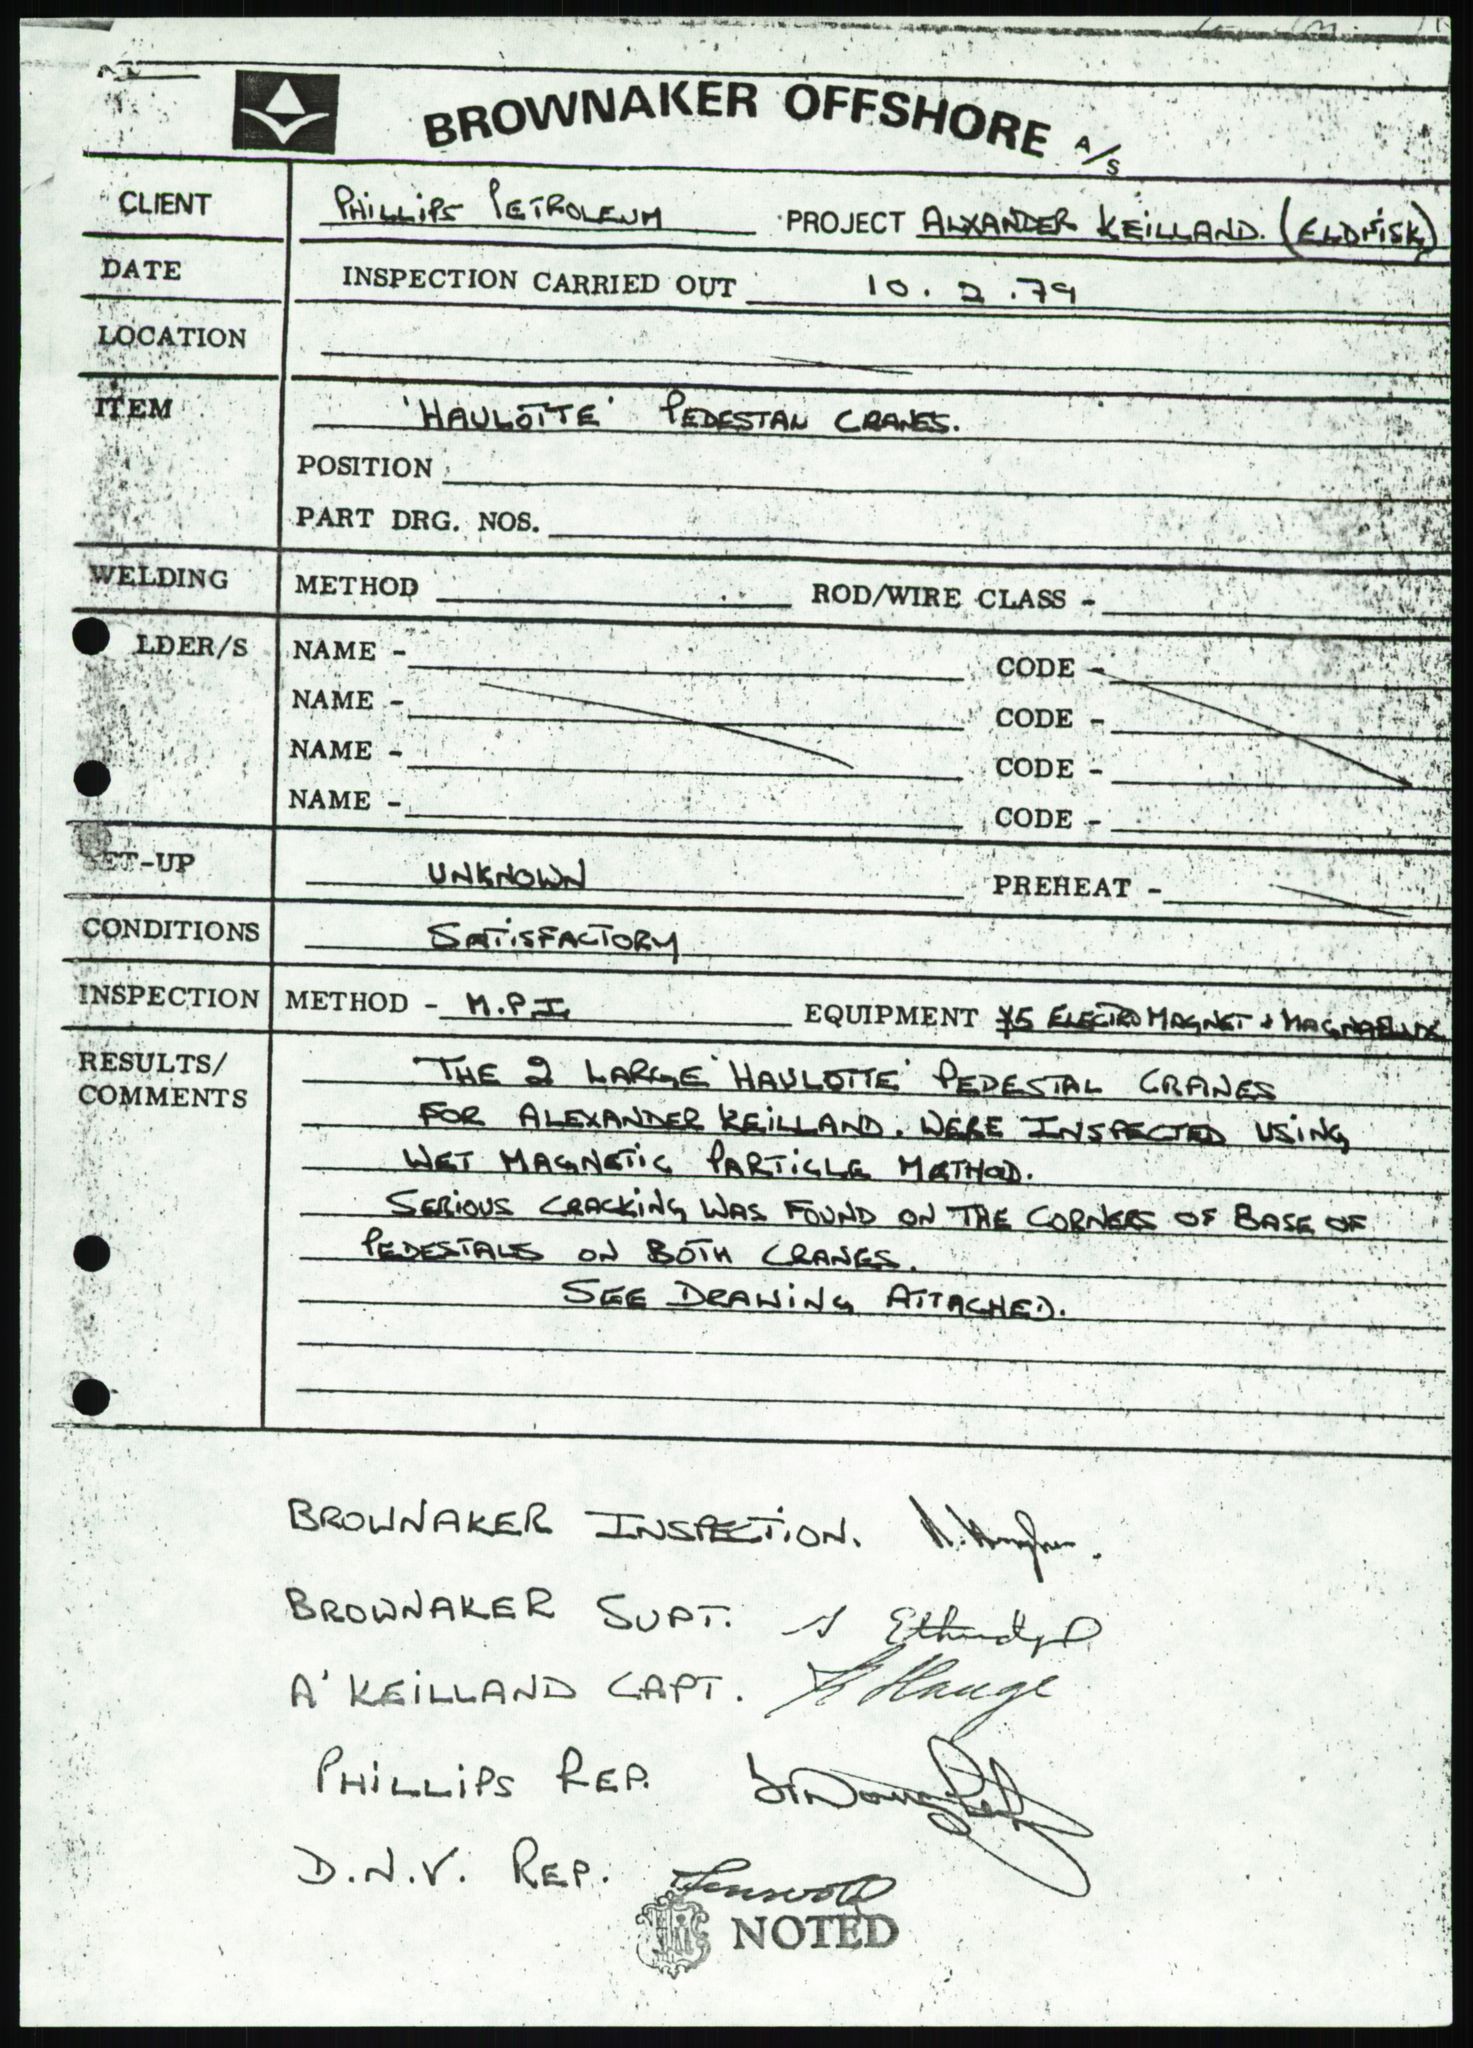 BROWNAKER OFFSHORE A/S
CLIENT PHILLIPS PETROLEUM PROJECT ALXANDER KEILLAND. (ELDFISK)
DATE INSPECTION CARRIED OUT 10.2.79
LOCATION
ITEM 'HAULOTTE' PEDESTAL CRANES.
POSITION
PART DRG. NOS.
WELDING METHOD ROD/WIRE CLASS -
LDER/S NAME - CODE -
NAME - CODE -
NAME - CODE -
NAME - CODE -
SET-UP UNKNOWN PREHEAT -
CONDITIONS SATISFACTORY
INSPECTION METHOD - M.P.I. EQUIPMENT Y5 ELECTRO MAGNET + MAGNAFLUX
RESULTS/ THE 2 LARGE 'HAULOTTE' PEDESTAL CRANES
COMMENTS FOR ALEXANDER KEILLAND. WERE INSPECTED USING
WET MAGNETIC PARTICLE METHOD.
SERIOUS CRACKING WAS FOUND ON THE CORNERS OF BASE OF
PEDESTALS ON BOTH CRANES.
SEE DRAWING ATTACHED.
BROWNAKER INSPECTION.
BROWNAKER SUPT.
A' KEILLAND CAPT. Hauge
PHILLIPS REP.
D.N.V. REP.
NOTED